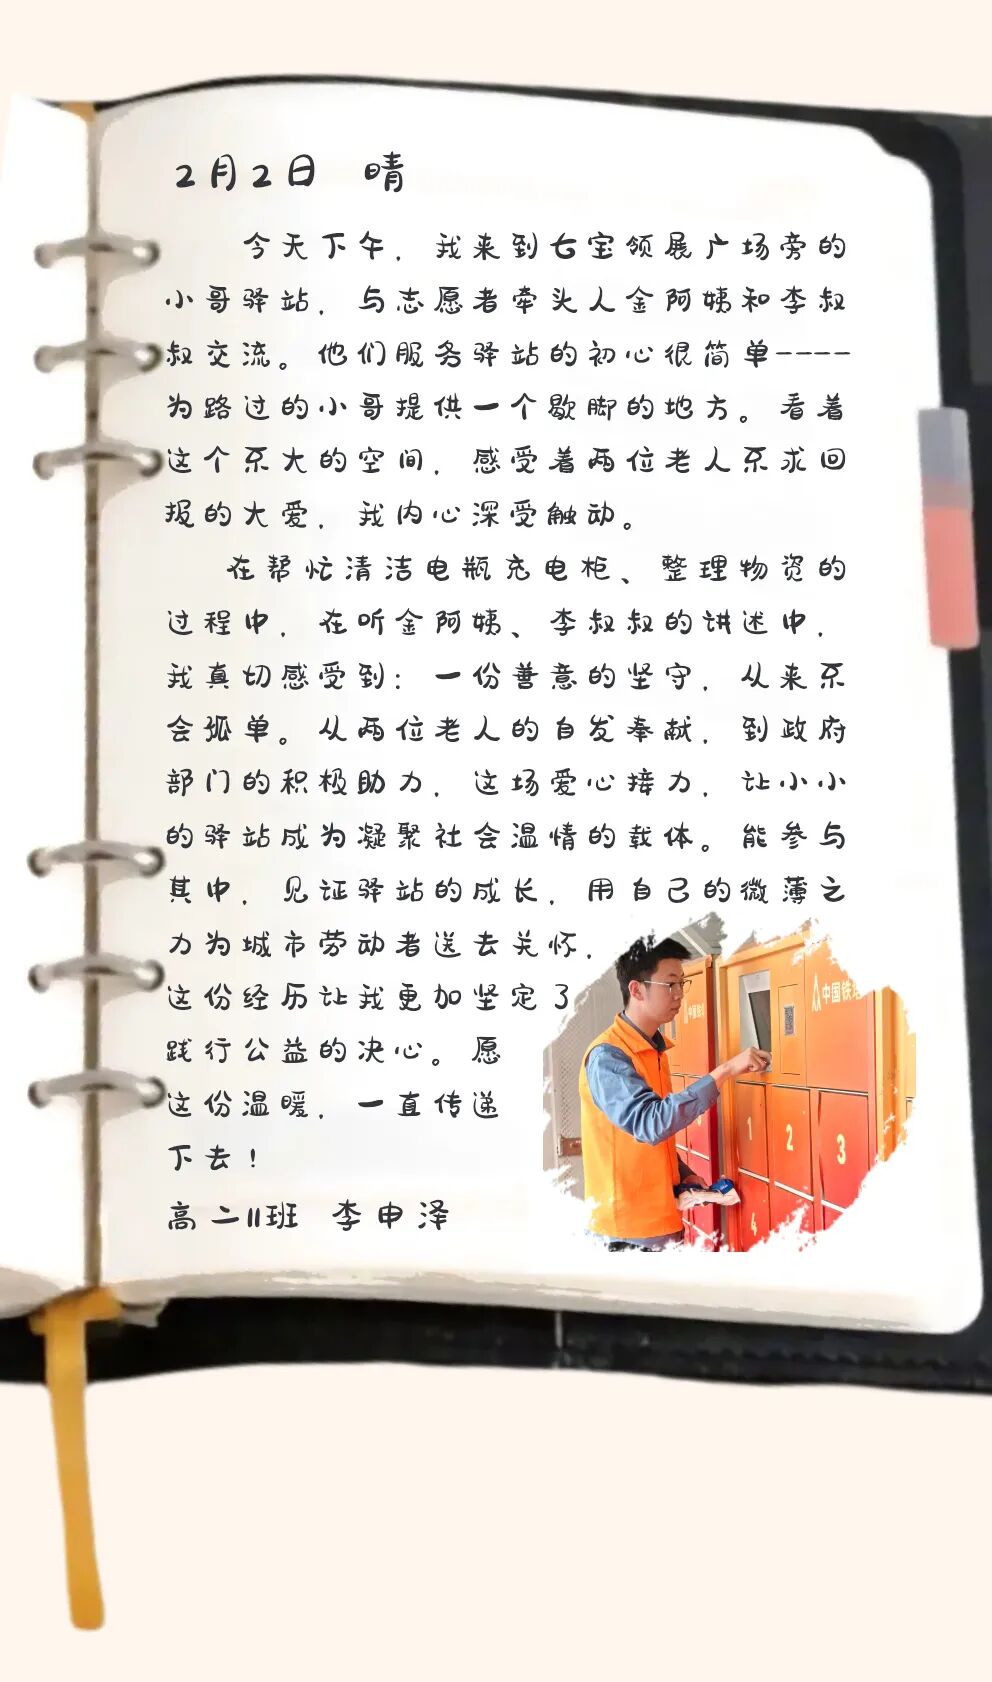 2月2日 晴
今天下午，我来到七宝领展广场旁的
小哥驿站，与志愿者牵头人金阿姨和李叔
叔交流。他们服务驿站的初心很简单----
为路过的小哥提供一个歇脚的地方。看着
这个不大的空间，感受着两位老人不求回
报的大爱，我内心深受触动。
在帮忙清洁电瓶充电柜、整理物资的
过程中，在听金阿姨、李叔叔的讲述中，
我真切感受到：一份善意的坚守，从来不
会孤单。从两位老人的自发奉献，到政府
部门的积极助力，这场爱心接力，让小小
的驿站成为凝聚社会温情的载体。能参与
其中，见证驿站的成长，用自己的微薄之
力为城市劳动者送去关怀，
这份经历让我更加坚定了
践行公益的决心。愿
这份温暖，一直传递
下去！
高二11班 李申泽
中国铁塔
1
2
3
4